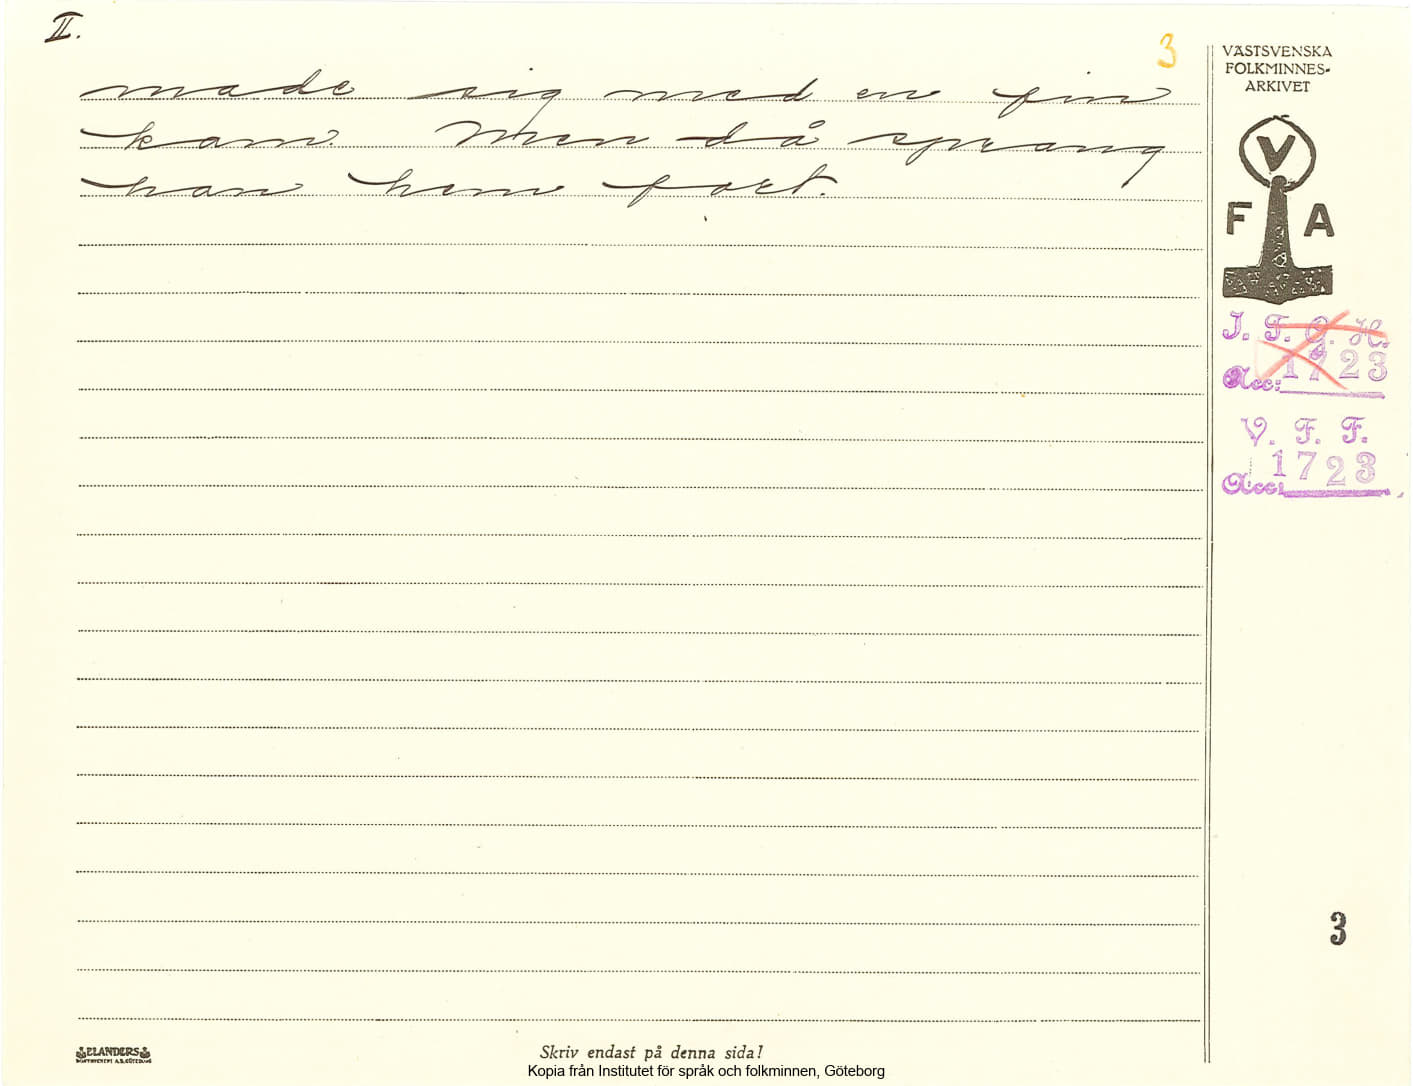 II.
3
made sig med en fin
kam. Men då sprang
han hem fort.
VÄSTSVENSKA
FOLKMINNES-
ARKIVET
V
F A
I. F. G. H.
Acc: 1723
V. F. F.
Acc: 1723
3
ELANDERS
Skriv endast på denna sida!
Kopia från Institutet för språk och folkminnen, Göteborg